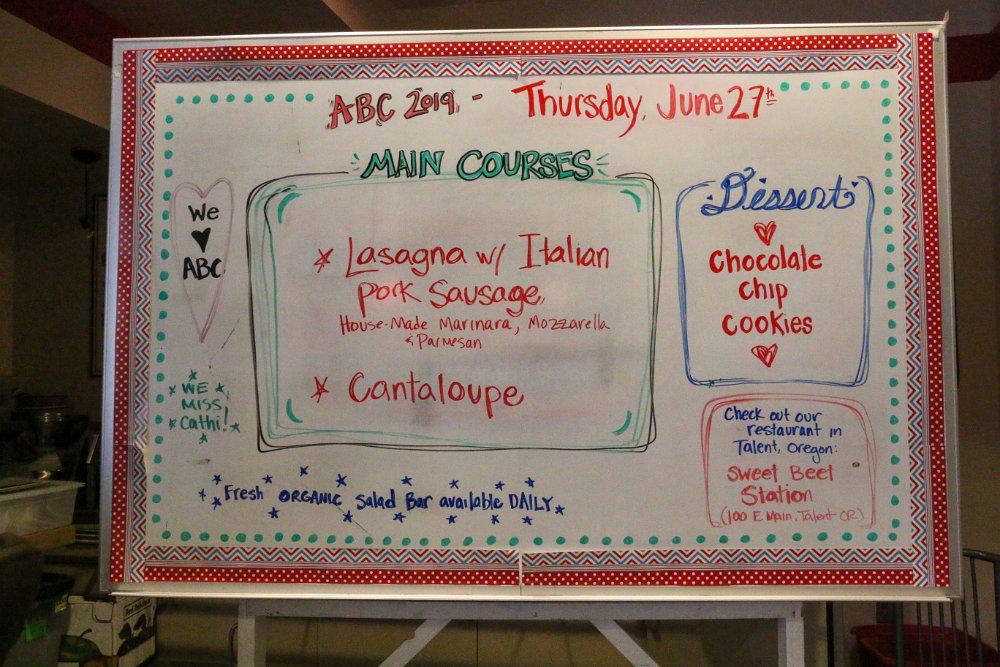 ABC 2019 - Thursday, June 27th
MAIN COURSES
Lasagna w/ Italian
Pork Sausage,
House-Made Marinara, Mozzarella
& Parmesan
Cantaloupe
Dessert
Chocolate
Chip
Cookies
We
♥
ABC
WE
MISS
Cathi!
Check out our
restaurant in
Talent, Oregon:
Sweet Beet
Station
(100 E Main, Talent OR)
Fresh ORGANIC Salad Bar available DAILY